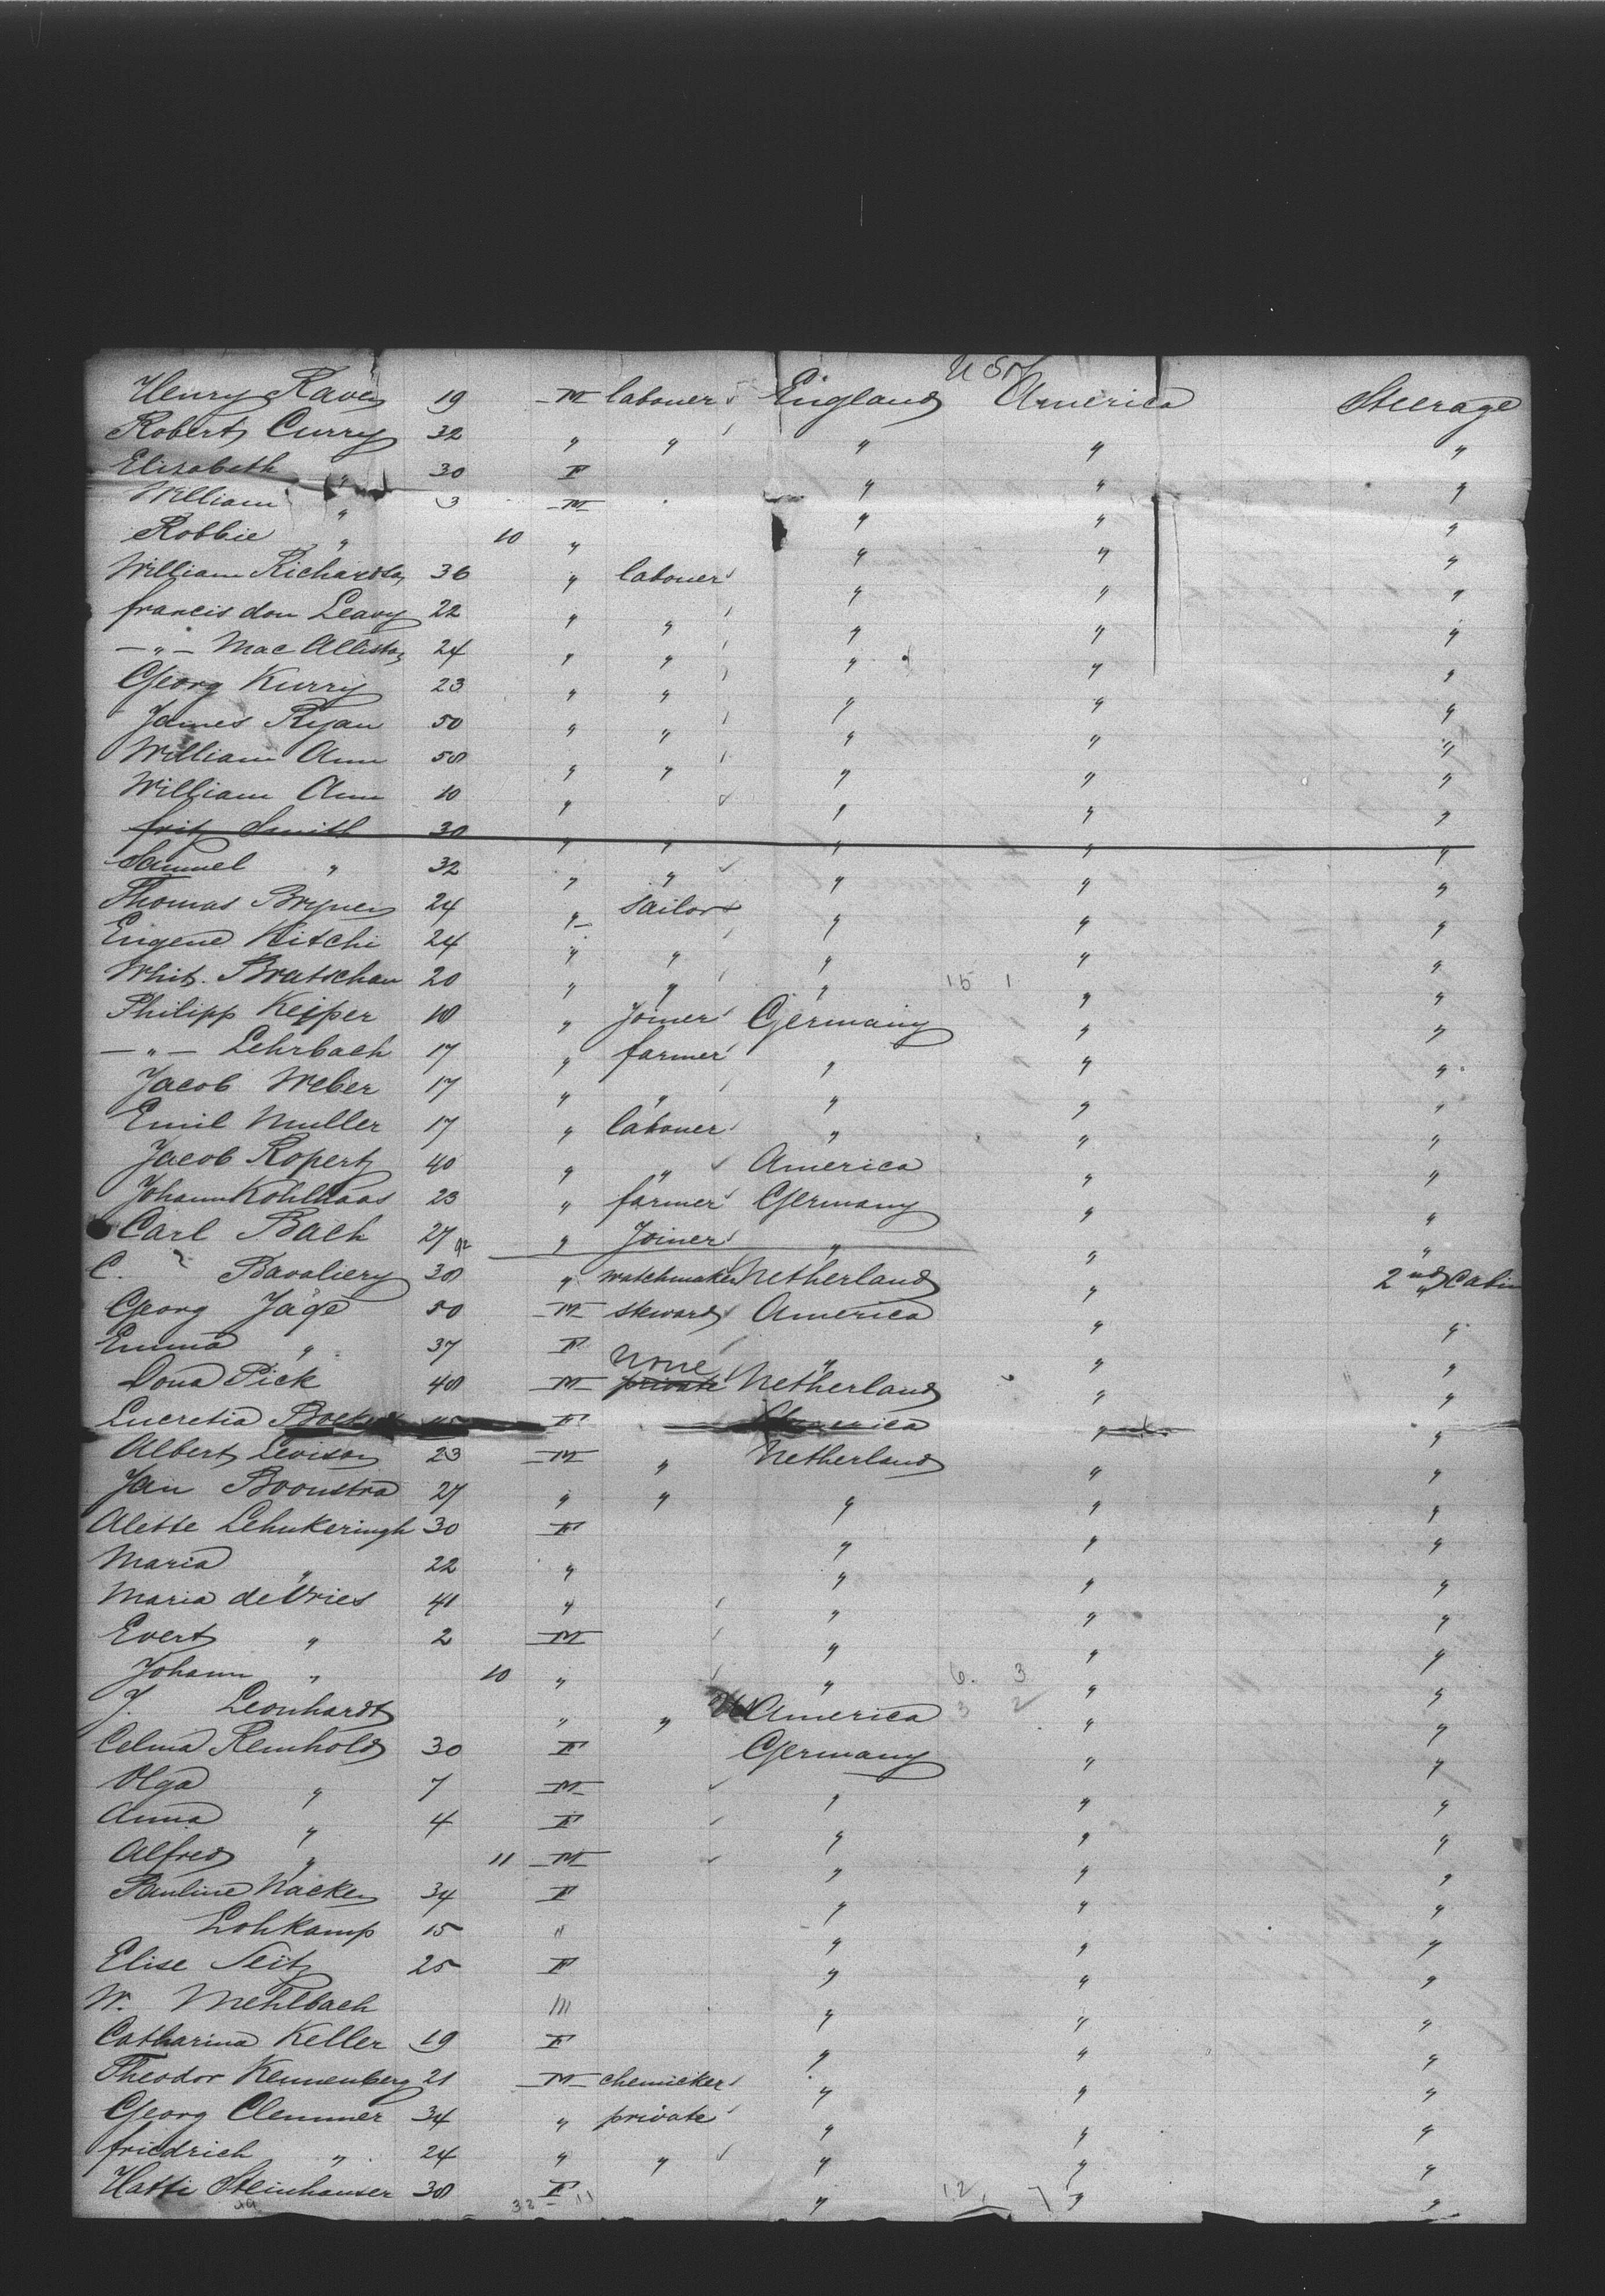 U S A
Henry Raven 19 M labouer England America Steerage
Robert Curry 32 " " " " "
Elisabeth " 30 F " " "
William " 3 M " " "
Robbie " 10 " " " "
William Richardson 36 " labouer " " "
francis don Leavy 22 " " " " "
— " — Mac Alliston 24 " " " " "
Georg Kurry 23 " " " " "
James Ryan 50 " " " " "
William Ann 58 " " " " "
William Ann 10 " " " "
fritz Smith 30 " " " " "
Samuel " 32 " " " " "
Thomas Brynen 24 " Sailor " " "
Eugene Kitchi 24 " " " " "
Whit. Bratschau 20 " " " 15 1 " "
Philipp Keiper 18 " Joiner Germany " "
— " — Lehrbach 17 " farmer " " "
Jacob Weber 17 " " " " "
Emil Muller 17 " labouer " " "
Jacob Ropertz 40 " " America " "
Johann Kohlhaas 23 " farmer Germany " "
Carl Bach 27 " Joiner " " "
C. Bavaliery 38 " watchmaker Netherland " 2nd Cabin
Georg Jäge 50 M steward America " "
Emma " 37 F " " "
none
Dona Pick 48 M private Netherland " "
Lucretia F America " "
Albert Levison 23 M " Netherland " "
Jan Boonstra 27 " " " " "
Alette Lehnkeringh 30 F " " "
Maria " 22 " " " "
Maria de Vries 41 " " " "
Evert " 2 M " " "
Johann " 10 " " 6. 3 " "
J. Leonhardt " " America 3 2 " "
Celma Reinhold 30 F Germany " "
Olga " 7 M " " "
Anna " 4 F " " "
Alfred " 11 M " " "
Pauline Wacken 34 F " " "
Lohkamp 15 " " " "
Elise Seitz 25 F " " "
W. Mehlbach " " "
Catharina Keller 19 F " " "
Theodor Kennenberg 21 M chemicker " " "
Georg Clemmer 34 " private " " "
friedrich " 24 " " " " "
Hatti Steinhauser 38 F " " "
38 11 12 7